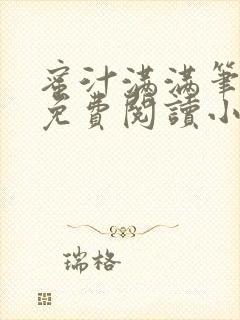 蜜汁滿滿筆
免費閱讀小
瑞格